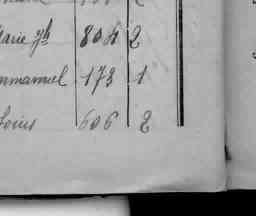 Marie Jh 804 2
mmanuel 173 1
Louis 606 2